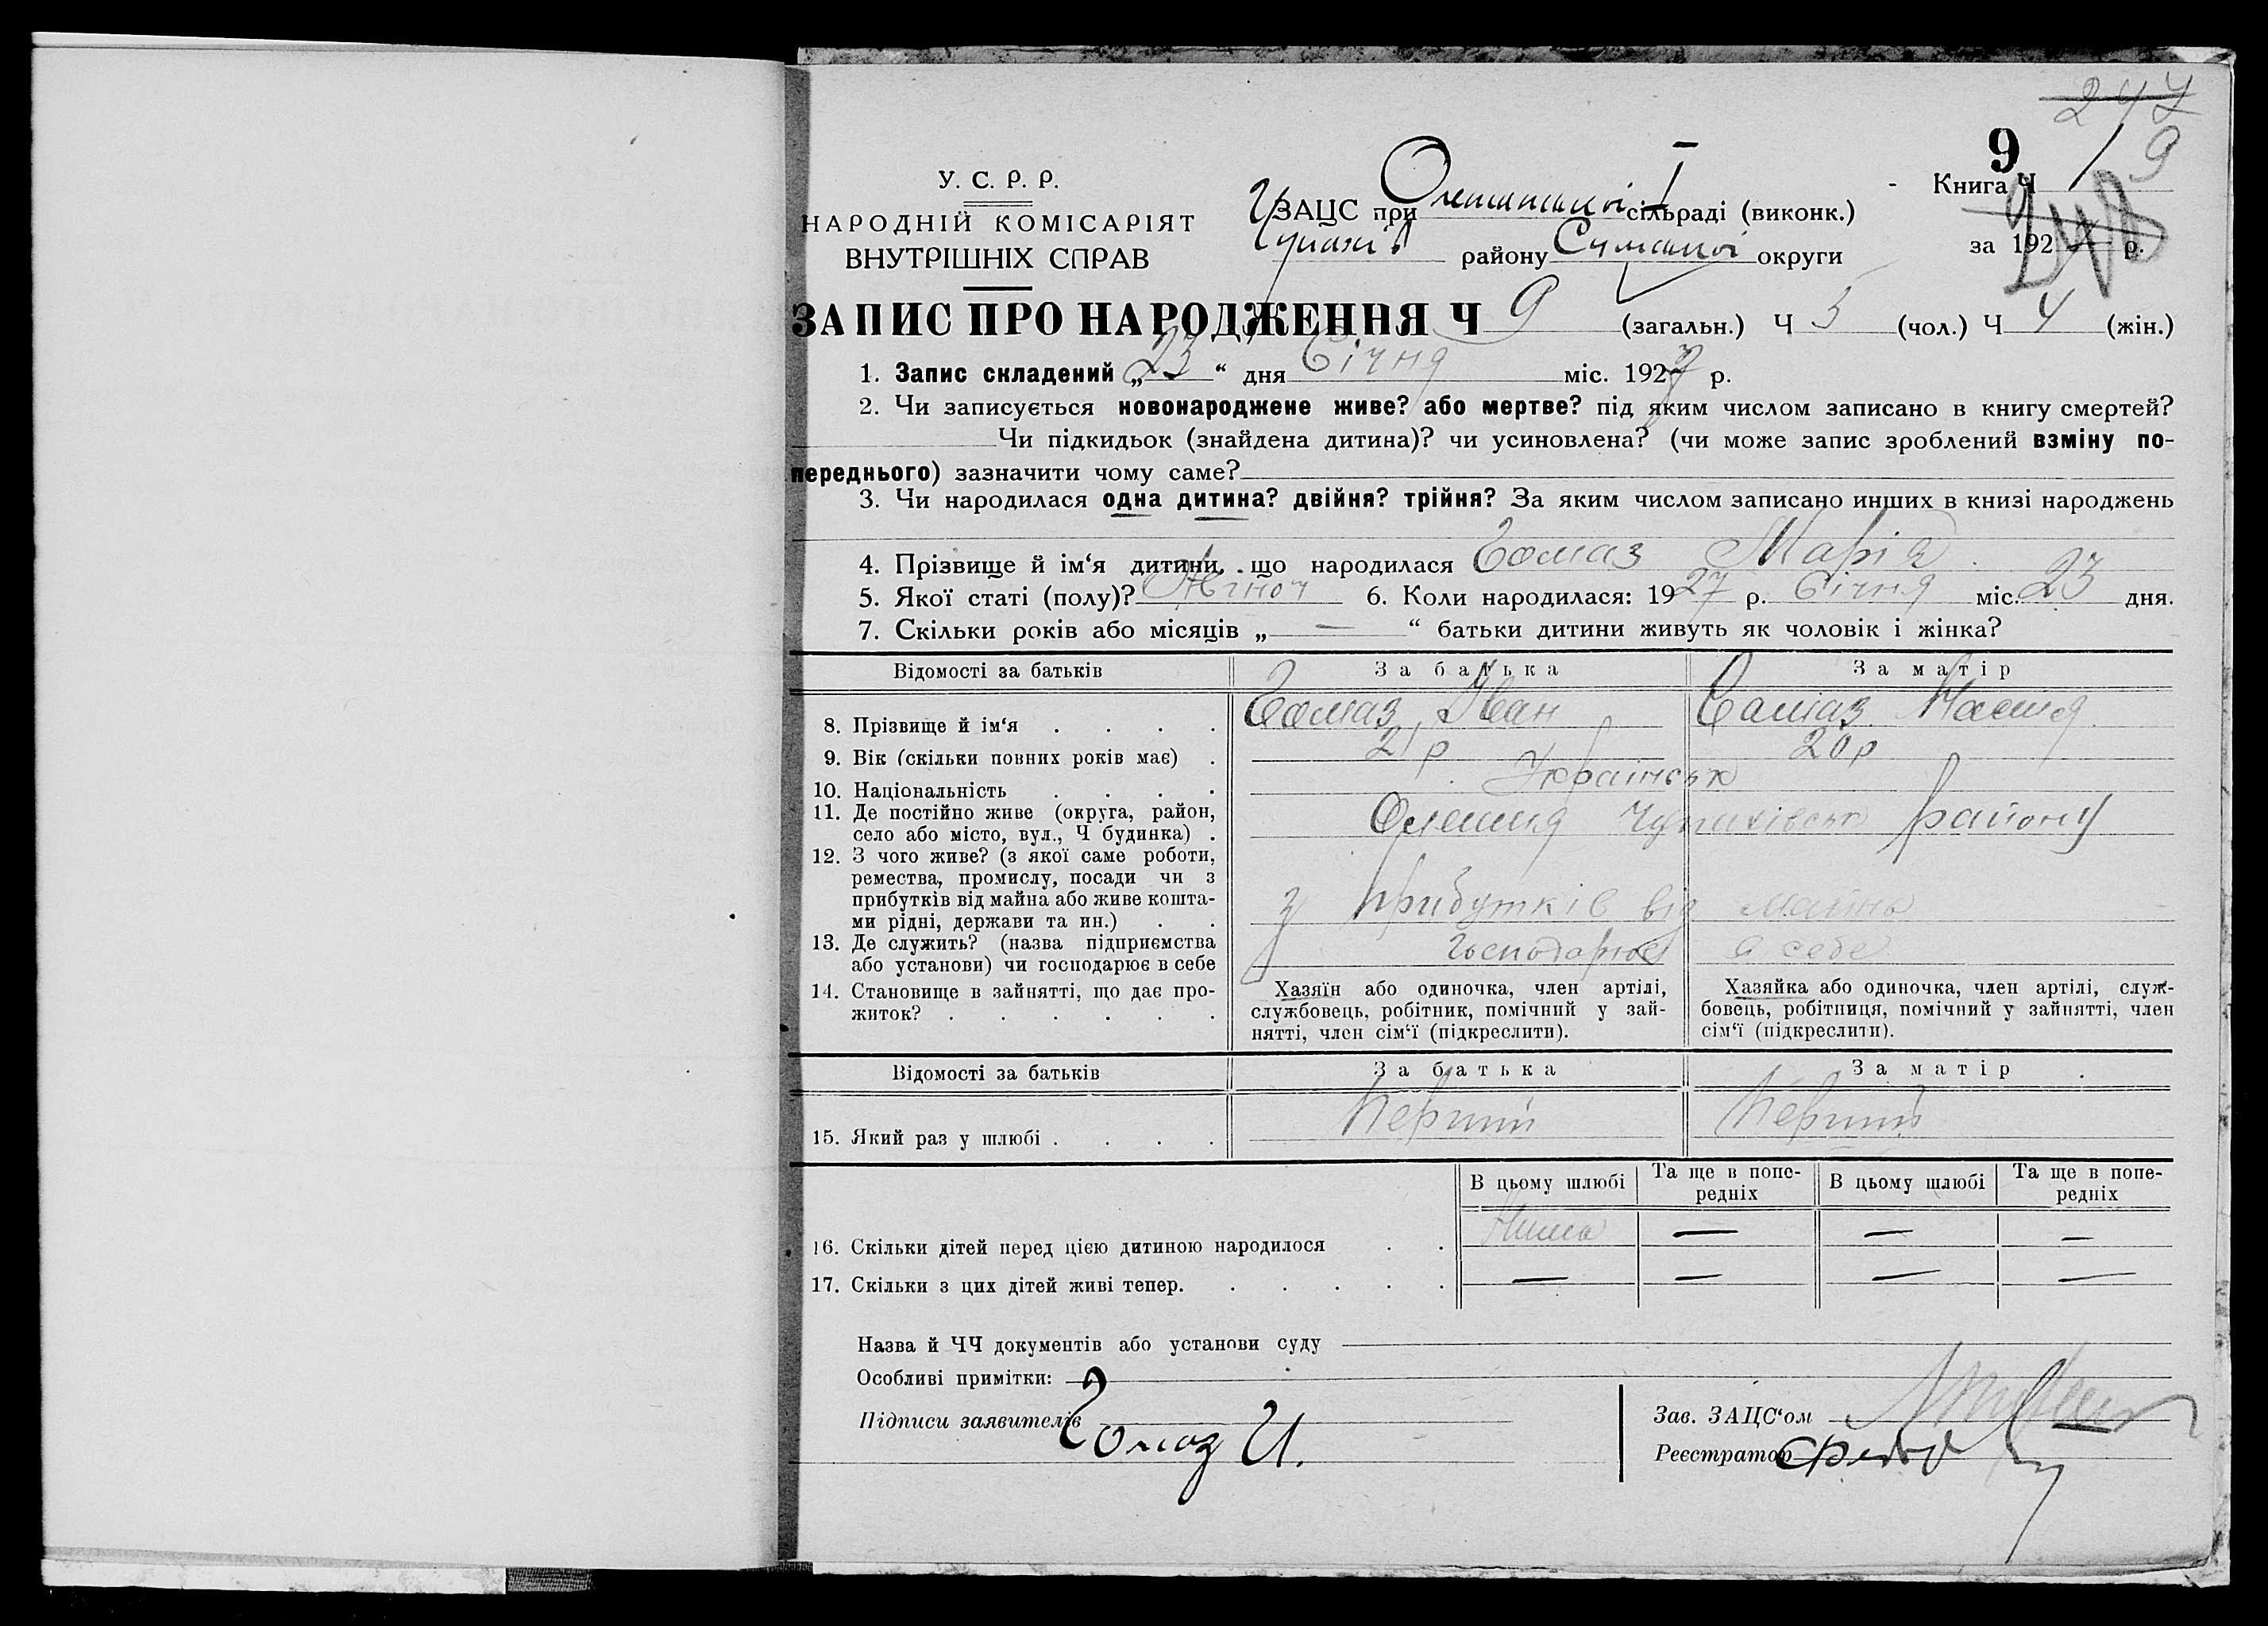 247
9
1 9
У. С. Р. Р.
НАРОДНІЙ КОМІСАРІЯТ
ВНУТРІШНІХ СПРАВ
ЗАЦС при сільраді (виконк.)
району Сумської округи
Книга Ч
за 192 р.
248
ЗАПИС ПРО НАРОДЖЕННЯ Ч 9 (загальн.) Ч 5 (чол.) Ч 4 (жін.)
1. Запис складений „23“ дня Січня міс. 1927 р.
2. Чи записується новонароджене живе? або мертве? під яким числом записано в книгу смертей?
Чи підкидьок (знайдена дитина)? чи усиновлена? (чи може запис зроблений взміну по-
переднього) зазначити чому саме?
3. Чи народилася одна дитина? двійня? трійня? За яким числом записано инших в книзі народжень
4. Прізвище й ім‘я дитини, що народилася Гомаз Марія
5. Якої статі (полу)? Жіноч 6. Коли народилася: 1927 р. Січня міс. 23 дня.
7. Скільки років або місяців „ — “ батьки дитини живуть як чоловік і жінка?
Відомості за батьків За батька За матір
8. Прізвище й ім‘я . . . . Гомаз Іван Гомаз
9. Вік (скільки повних років має) . 21 р 20 р
10. Національність . . . . Українськ
11. Де постійно живе (округа, район,
село або місто, вул., Ч будинка) . Олешня Чупахівськ району
12. З чого живе? (з якої саме роботи,
ремества, промислу, посади чи з
прибутків від майна або живе кошта-
ми рідні, держави та ин.) . . з прибутків від майна
13. Де служить? (назва підприємства
або установи) чи господарює в себе господарює в себе
14. Становище в зайнятті, що дає про-
житок? . . . . . .
Хазяїн або одиночка, член артілі,
службовець, робітник, помічний у зай-
нятті, член сім‘ї (підкреслити).
Хазяйка або одиночка, член артілі, служ-
бовець, робітниця, помічний у зайнятті, член
сім‘ї (підкреслити).
Відомості за батьків За батька За матір
15. Який раз у шлюбі . . . . Перший Перший
В цьому шлюбі Та ще в попе-
редніх В цьому шлюбі Та ще в попе-
редніх
16. Скільки дітей перед цією дитиною народилося . . — — —
17. Скільки з цих дітей живі тепер. . . . . — — — —
Назва й ЧЧ документів або установи суду
Особливі примітки:
Підписи заявителів Гомоз И.
Зав. ЗАЦС‘ом
Реєстратор